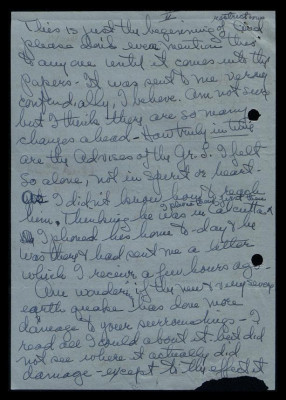 II
restructions
This is just the beginning of
please don't even mention this
to anyone until it comes into the
Papers. It was sent to me very
confidentially, I believe. Am not sure
but I think there are so many
changes ahead. How truly in time
are the Advices of the Gr. S. I felt
so alone, not in spirit or heart.
I didn't know how to reach
him. Thinking he was in Calcutta
I phoned his home to-day & he
was there & had sent me a letter
which I receive a few hours ago.
Am wondering if the new & very heavy
earth quake has done more
damage to your surroundings - I
read all I could about it but did
not see where it actually did
damage - except to the effect it